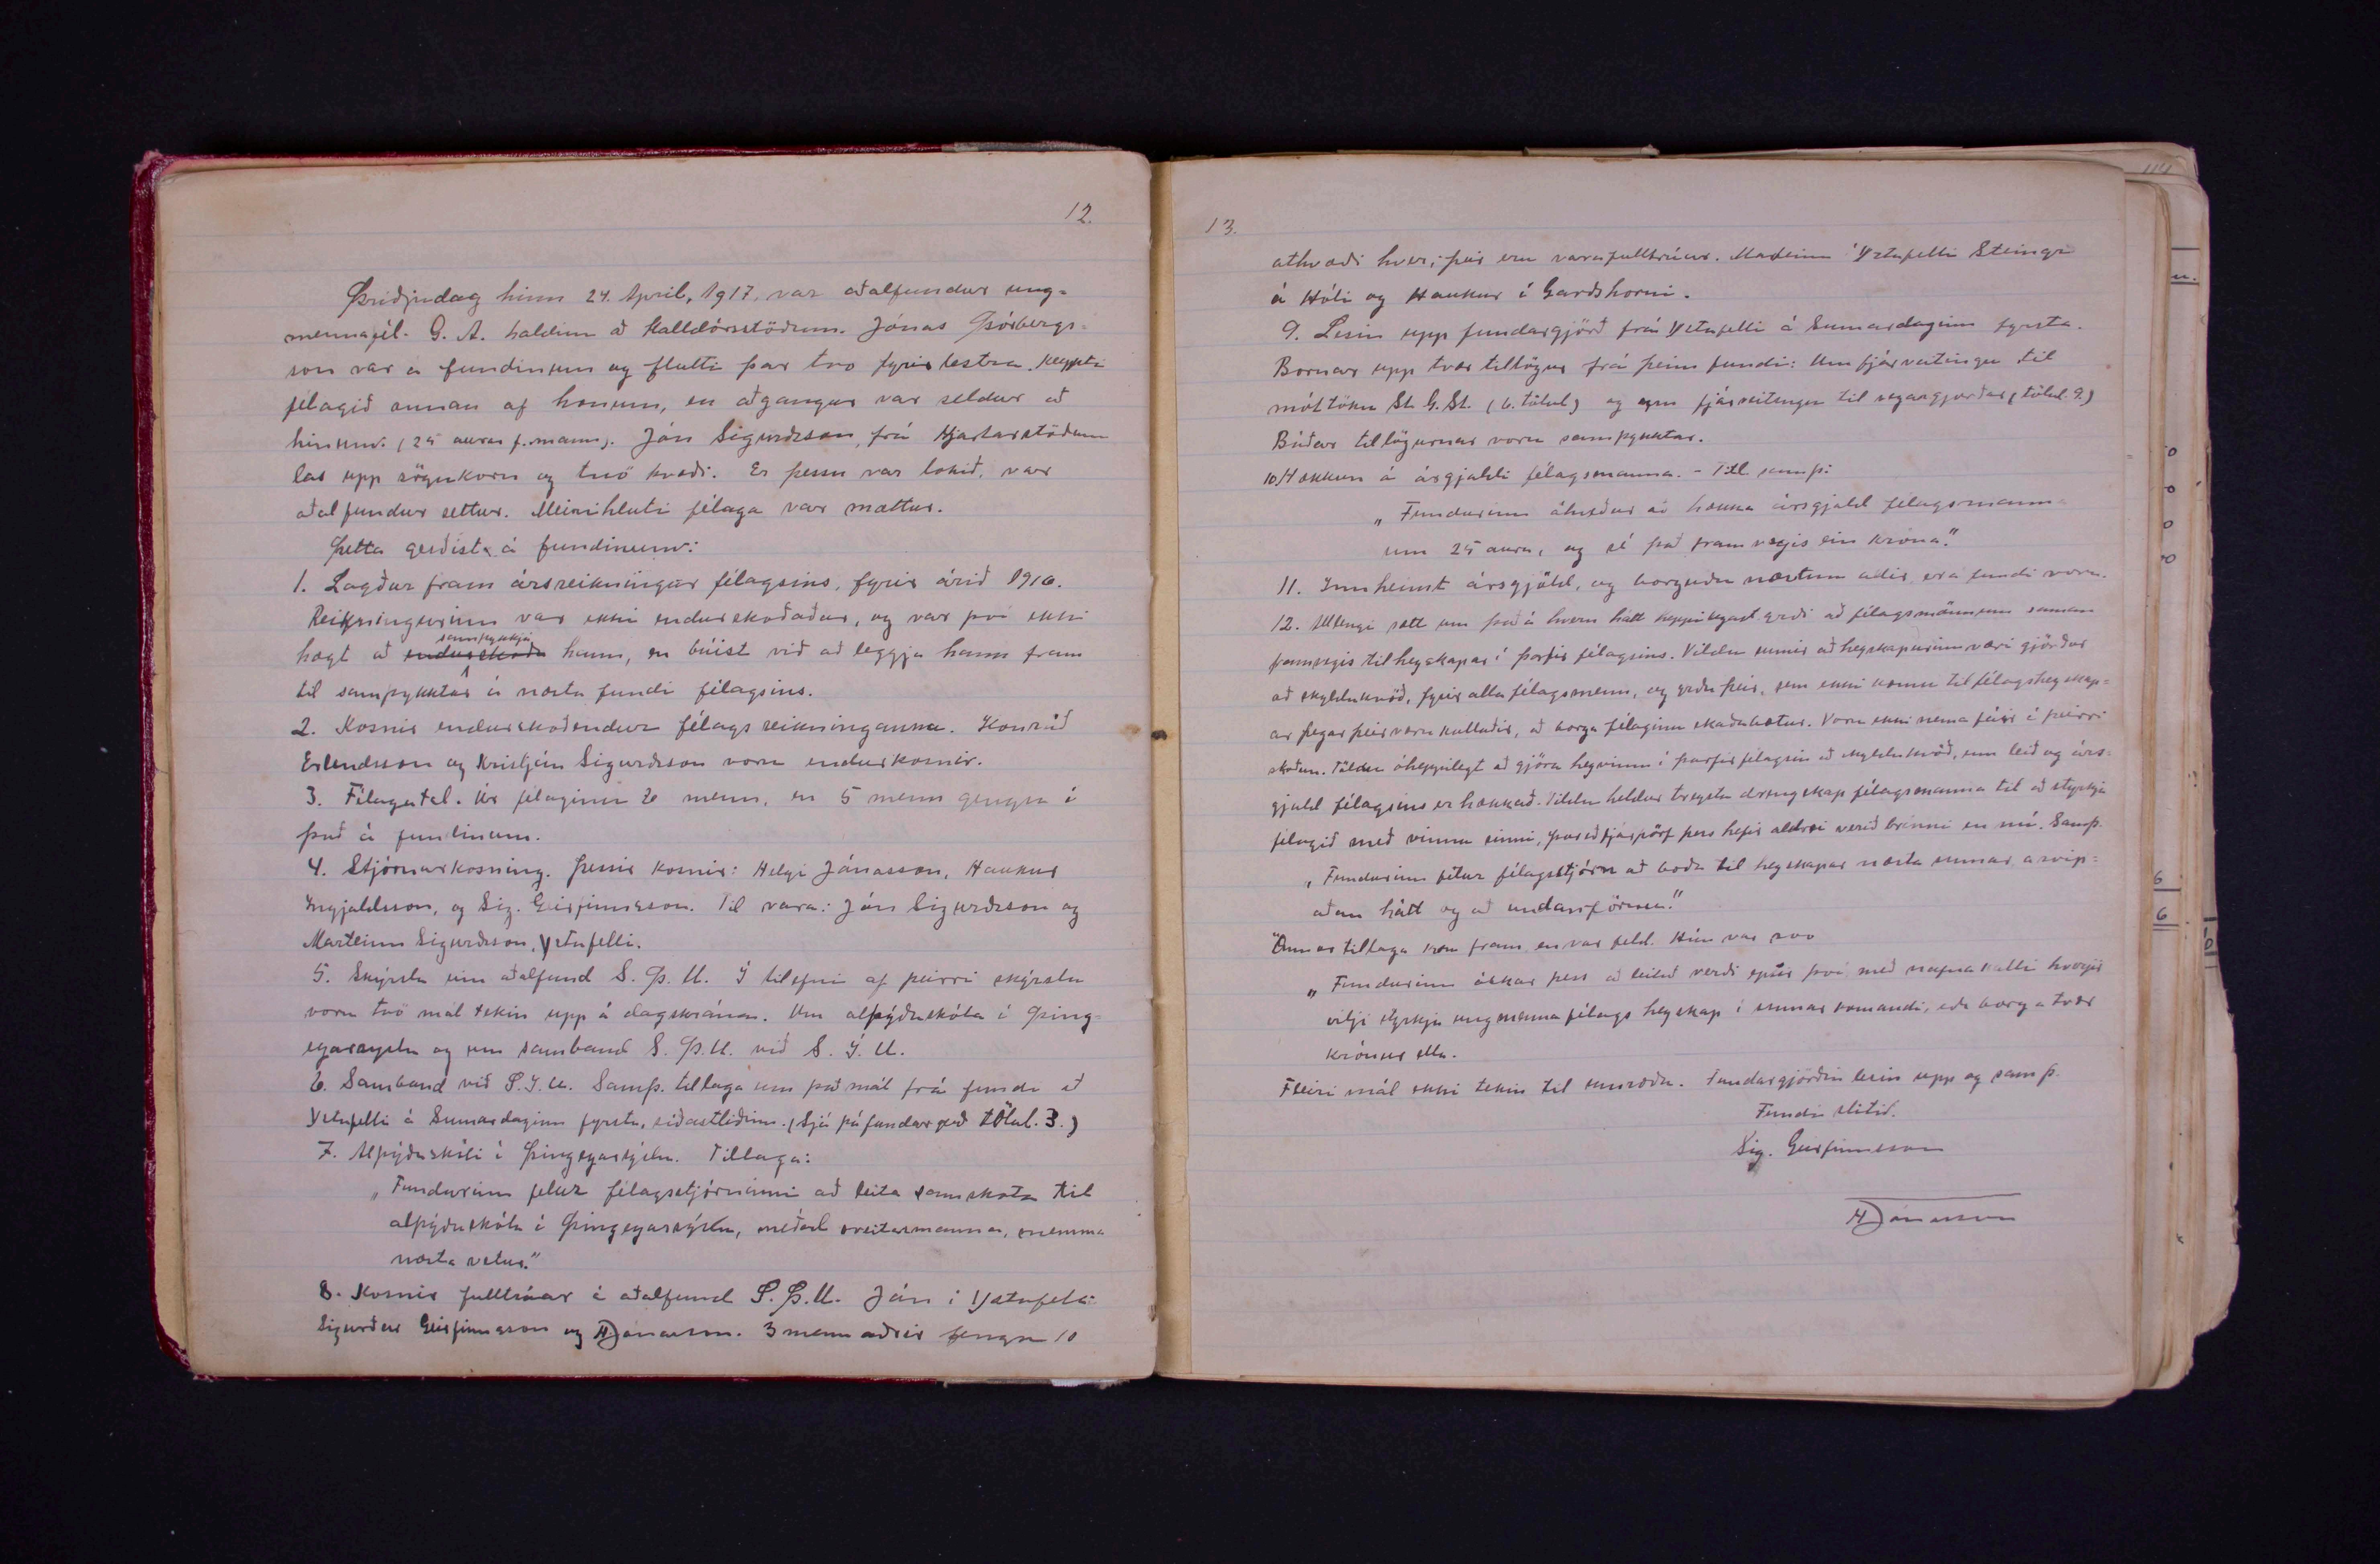 12.
Þriðjudag hinn 24. Apríl, 1917, var aðalfundur ung=
mennafél. G. A. haldinn að Halldórsstöðum. Jónas Þórbergs=
son var á fundinum og flutti þar tvo fyrirlestra. Keypti
félagið annan af honum, en aðgangur var seldur að
hinum. (25 aurar f. mann). Jón Sigurðsson, frá Hjartarstöðum
las upp sögukorn og tvö kvæði. Er þessu var lokið, var
aðalfundur settur. Meirihluti félaga var mættur.
Þetta gerðist á fundinum:
1. Lagður fram ársreikningur félagsins, fyrir árið 1916.
Reikningurinn var ekki endurskoðaður, og var því ekki
hægt að samþykkja hann, en búist við að leggja hann fram
til samþykktar á næsta fundi félagsins.
2. Kosnir endurskoðendur félagsreikninganna. Konráð
Erlendsson og Kristján Sigurðsson voru endurkosnir.
3. Félagatal. Úr félaginu 2 menn, en 5 menn gengu í
það á fundinum.
4. Stjórnarkosning. Þessir kosnir: Helgi Jónasson, Haukur
Ingjaldsson, og Sig. Geirfinnsson. Til vara: Jón Sigurðsson og
Marteinn Sigurðsson, Ystafelli.
5. Skýrsla um aðalfund S. Þ. U. Í tilefni af þeirri skýrslu
voru tvö mál tekin upp á dagskrána. Um alþýðuskóla í Þing=
eyarsyslu og um samband S. Þ. U. við S. Í. U.
6. Samband við S. Í. U. Samþ. tillaga um það mál frá fundi að
Ystafelli á Sumardaginn fyrsta, síðastliðinn. (Sjá þá fundargerð tölul. 3.)
7. Alþýðuskóli í Þingeyarsýslu. Tillaga:
„Fundurinn felur félagsstjórninni að leita samskota til
alþýðuskóla í Þingeyarsýslu, meðal sveitarmanna, snemma
næsta vetur."
8. Kosnir fulltrúar á aðalfund S. Þ. U. Jón í Ystafelli
Sigurður Geirfinnsson og HJónasson. 3 menn aðrir fengu 10
13.
athvæði hver; þeir eru varafulltrúar. Marteinn í Ystafelli Steingr
á Hóli og Haukur í Garðshorni.
9. Lesin upp fundargjörð frá Ystafelli á Sumardaginn fyrsta.
Bornar upp tvær tillögur frá þeim fundi: Um fjárveitingu til
móttöku St. G. St. (6. tölul) og um fjárveitingu til vegargjorðar (tölul. 9.)
Báðar tillögurnar voru samþykktar.
10. Hækkun á ársgjaldi félagsmanna. - Till samþ:
„Fundurinn ákveður að hækka ársgjald félagsmanna
um 25 aura, og sé það framvegis ein króna."
11. Innheimt ársgjöld, og borguðu næstum allir er á fundi voru.
12. Allengi rætt um það á hvern hátt heppilegast yrði að félagsmönnum saman
framvegis til heyskapar í þarfir félagsins. Vildu sumir að heyskapurinn væri gjörður
að skyldukvöð, fyrir alla félagsmenn, og yrðu þeir, sem ekki kæmu til félagsheyskap=
ar þegar þeir væru kallaðir, að borga félaginu skaðabætur. Voru ekki nema fáir á þeirri
skoðun. Töldu óheppilegt að gjöra heyvinnu í þarfir félagsins að skyldukvöð, um leið og árs=
gjald félagsins er hækkað. Vildu heldur treysta drengskap félagsmanna til að styrkja
félagið með vinnu sinni, þar eð fjárþörf þess hefir aldrei verið brýnni en nú. Samþ.
„Fundurinn felur félagsstjórn að boða til heyskapar næsta sumar, á svip=
aðan hátt og að undanförnu."
Önnur tillaga kom fram en var feld. Hún var svo
„Fundurinn óskar þess að leitað verði eptir því, með nafnakalli hverjir
vilji styrkja ungmennafélags heyskap í sumar komandi, eða borga tvær
krónur ella.
Fleiri mál ekki tekin til umræðu. Fundargjörðin lesin upp og samþ.
Fundi slitið.
Sig. Geirfinnsson
HJónasson